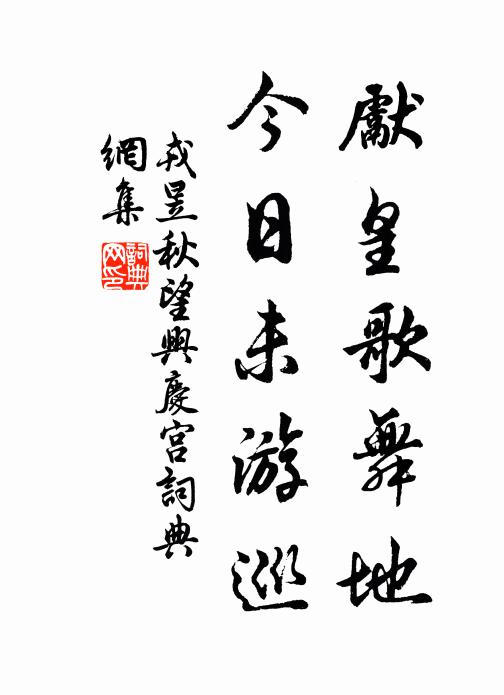 獻皇歌舞地
今日未游巡
戎昱秋望興慶宮詞典
網集
詞典
网印